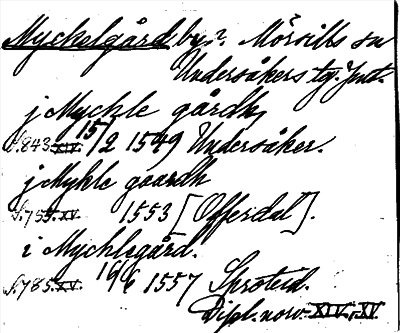 Myckelgård by? Mörsills sn
Undersåkers tg. Jmt.
j Mychle gårdh
S. 843. XIV. 15/2 1549 Undersåker.
j Mykle gaardh
S. 755. XV. 1553 [Offerdal].
i Mychlegård.
S. 785. XV. 16/6 1557 Sproteid.
Dipl. norv. XIV, XV.